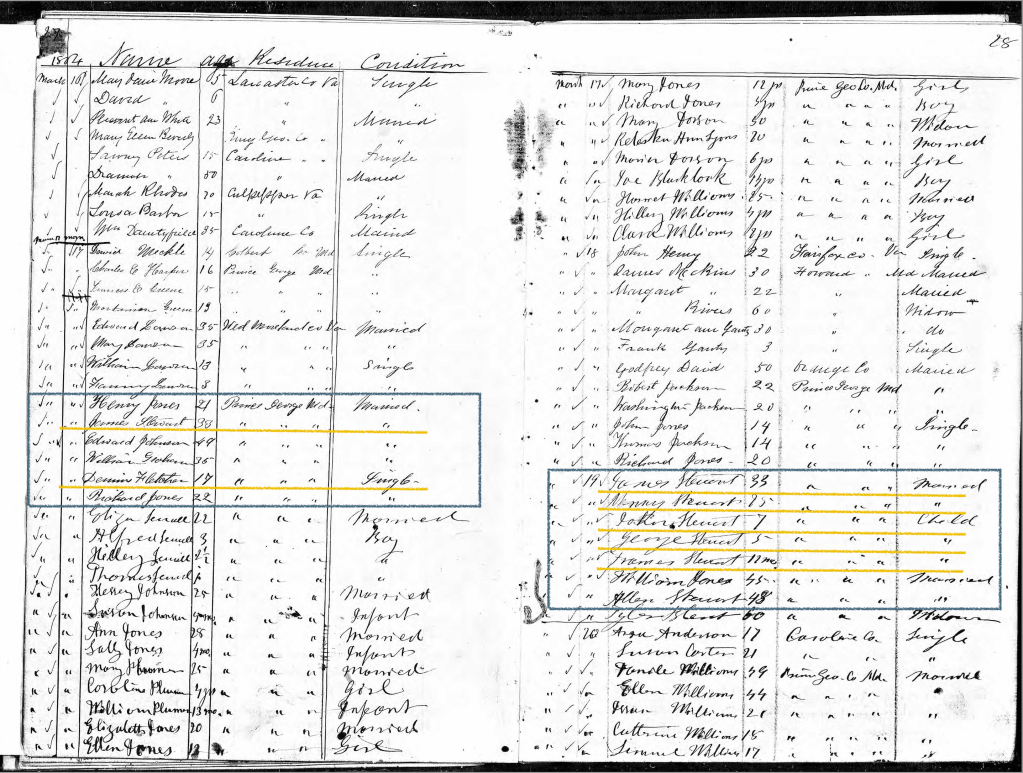 1864 Name age Residence Condition
March 16 Mary Marie Moore 65 Lancaster Co Va Single
David " 6 "
23 " Married
Mary Ellen Beverly King Geo. Co "
Peter 15 Caroline " " Single
" 50 " Maried
Mariah Rhodes 70 Culpepper Va "
Lousa Barbor 15 " Single
35 Caroline Co Maried
17 Meekle 14 Md Single
Charles C Harper 16 Prince George Md "
Frances C Greene 15 " " "
Greene 13 " " "
Edward 35 West Moreland co Va Married
Mary 35 " " " "
William 13 " " " Single
Fanny 8 " " " "
Henry Jones 21 Prince George Md. Married.
James Stewart 33 " " " "
Edward Johnson 49 " " " "
William Graham 35 " " " "
Dennis Fletcher 17 " " " Single
Richard Jones 22 " " " "
Eliza Sewell 22 " " " Married
Alfred Sewell 3 " " " Boy
Hillery Sewell 2½ " " "
Thomas Sewell " " " "
Henry Johnson 25 " " " Married
Susan Johnson " " " Infant
Ann Jones 28 " " " Married
Sally Jones 4 mo. " " " Infant
Mary Plumm 25 " " " Married
Caroline Plumm 4 yrs " " " Girl
William Plummer 13 mo. " " " Infant
Elizabeth Jones 20 " " " Married
Ellen Jones 12 " " " Girl
28
March 17 Mary Jones 12 yr Prince Geo Co. Md. Girl
Richard Jones " " " " Boy
Mary Dorson 50 " " " " Widow
Ann Lyons 20 " " " " Married
Maria Dorson 6 yr " " " " Girl
Joe Blacklock " " " " Boy
Harriet Williams 25 " " " " Married
Hillery Williams 4 yr " " " " Boy
Clara Williams 2 yr " " " " Girl
18 John Henry 22 Fairfax Co. Va Single
James McKins 30 Howard " Md Maried
Margaret " 22 " Maried
" Rivers 60 " Widow
Margaret ann Gantz 30 " do
Frank Gantz 3 " Single
Godfrey David 50 Orange Co Maried
Robert Jackson 22 Prince George Md "
Washington Jackson 20 " " " "
John Jones 14 " " " Single
Thomas Jackson 14 " " "
Richard Jones 20 " " " "
19 James Stewart 33 " " " Married
Nenny Stewart 25 " " " "
Stewart 7 " " " Child
George Stewart 5 " " " "
Frances Stewart 12 mo " " " "
William Jones 45 " " " Married
Allen Stewart 48 " " " "
60 " " " Widow
20 Anderson 17 Caroline Co Single
Susan Carter 21 " " "
Williams 49 Prince Geo. Co. Md. Married
Ellen Williams 44 " " " "
Williams 21 " " " "
Catherine Williams 15 " " " "
Williams 17 " " " "